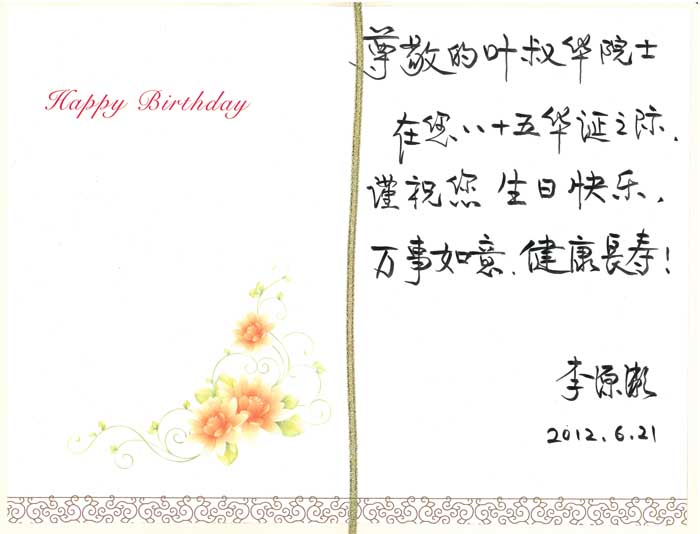 Happy Birthday
尊敬的叶叔华院士
在您八十五华诞之际，
谨祝您生日快乐，
万事如意、健康長寿！
李源潮
2012.6.21